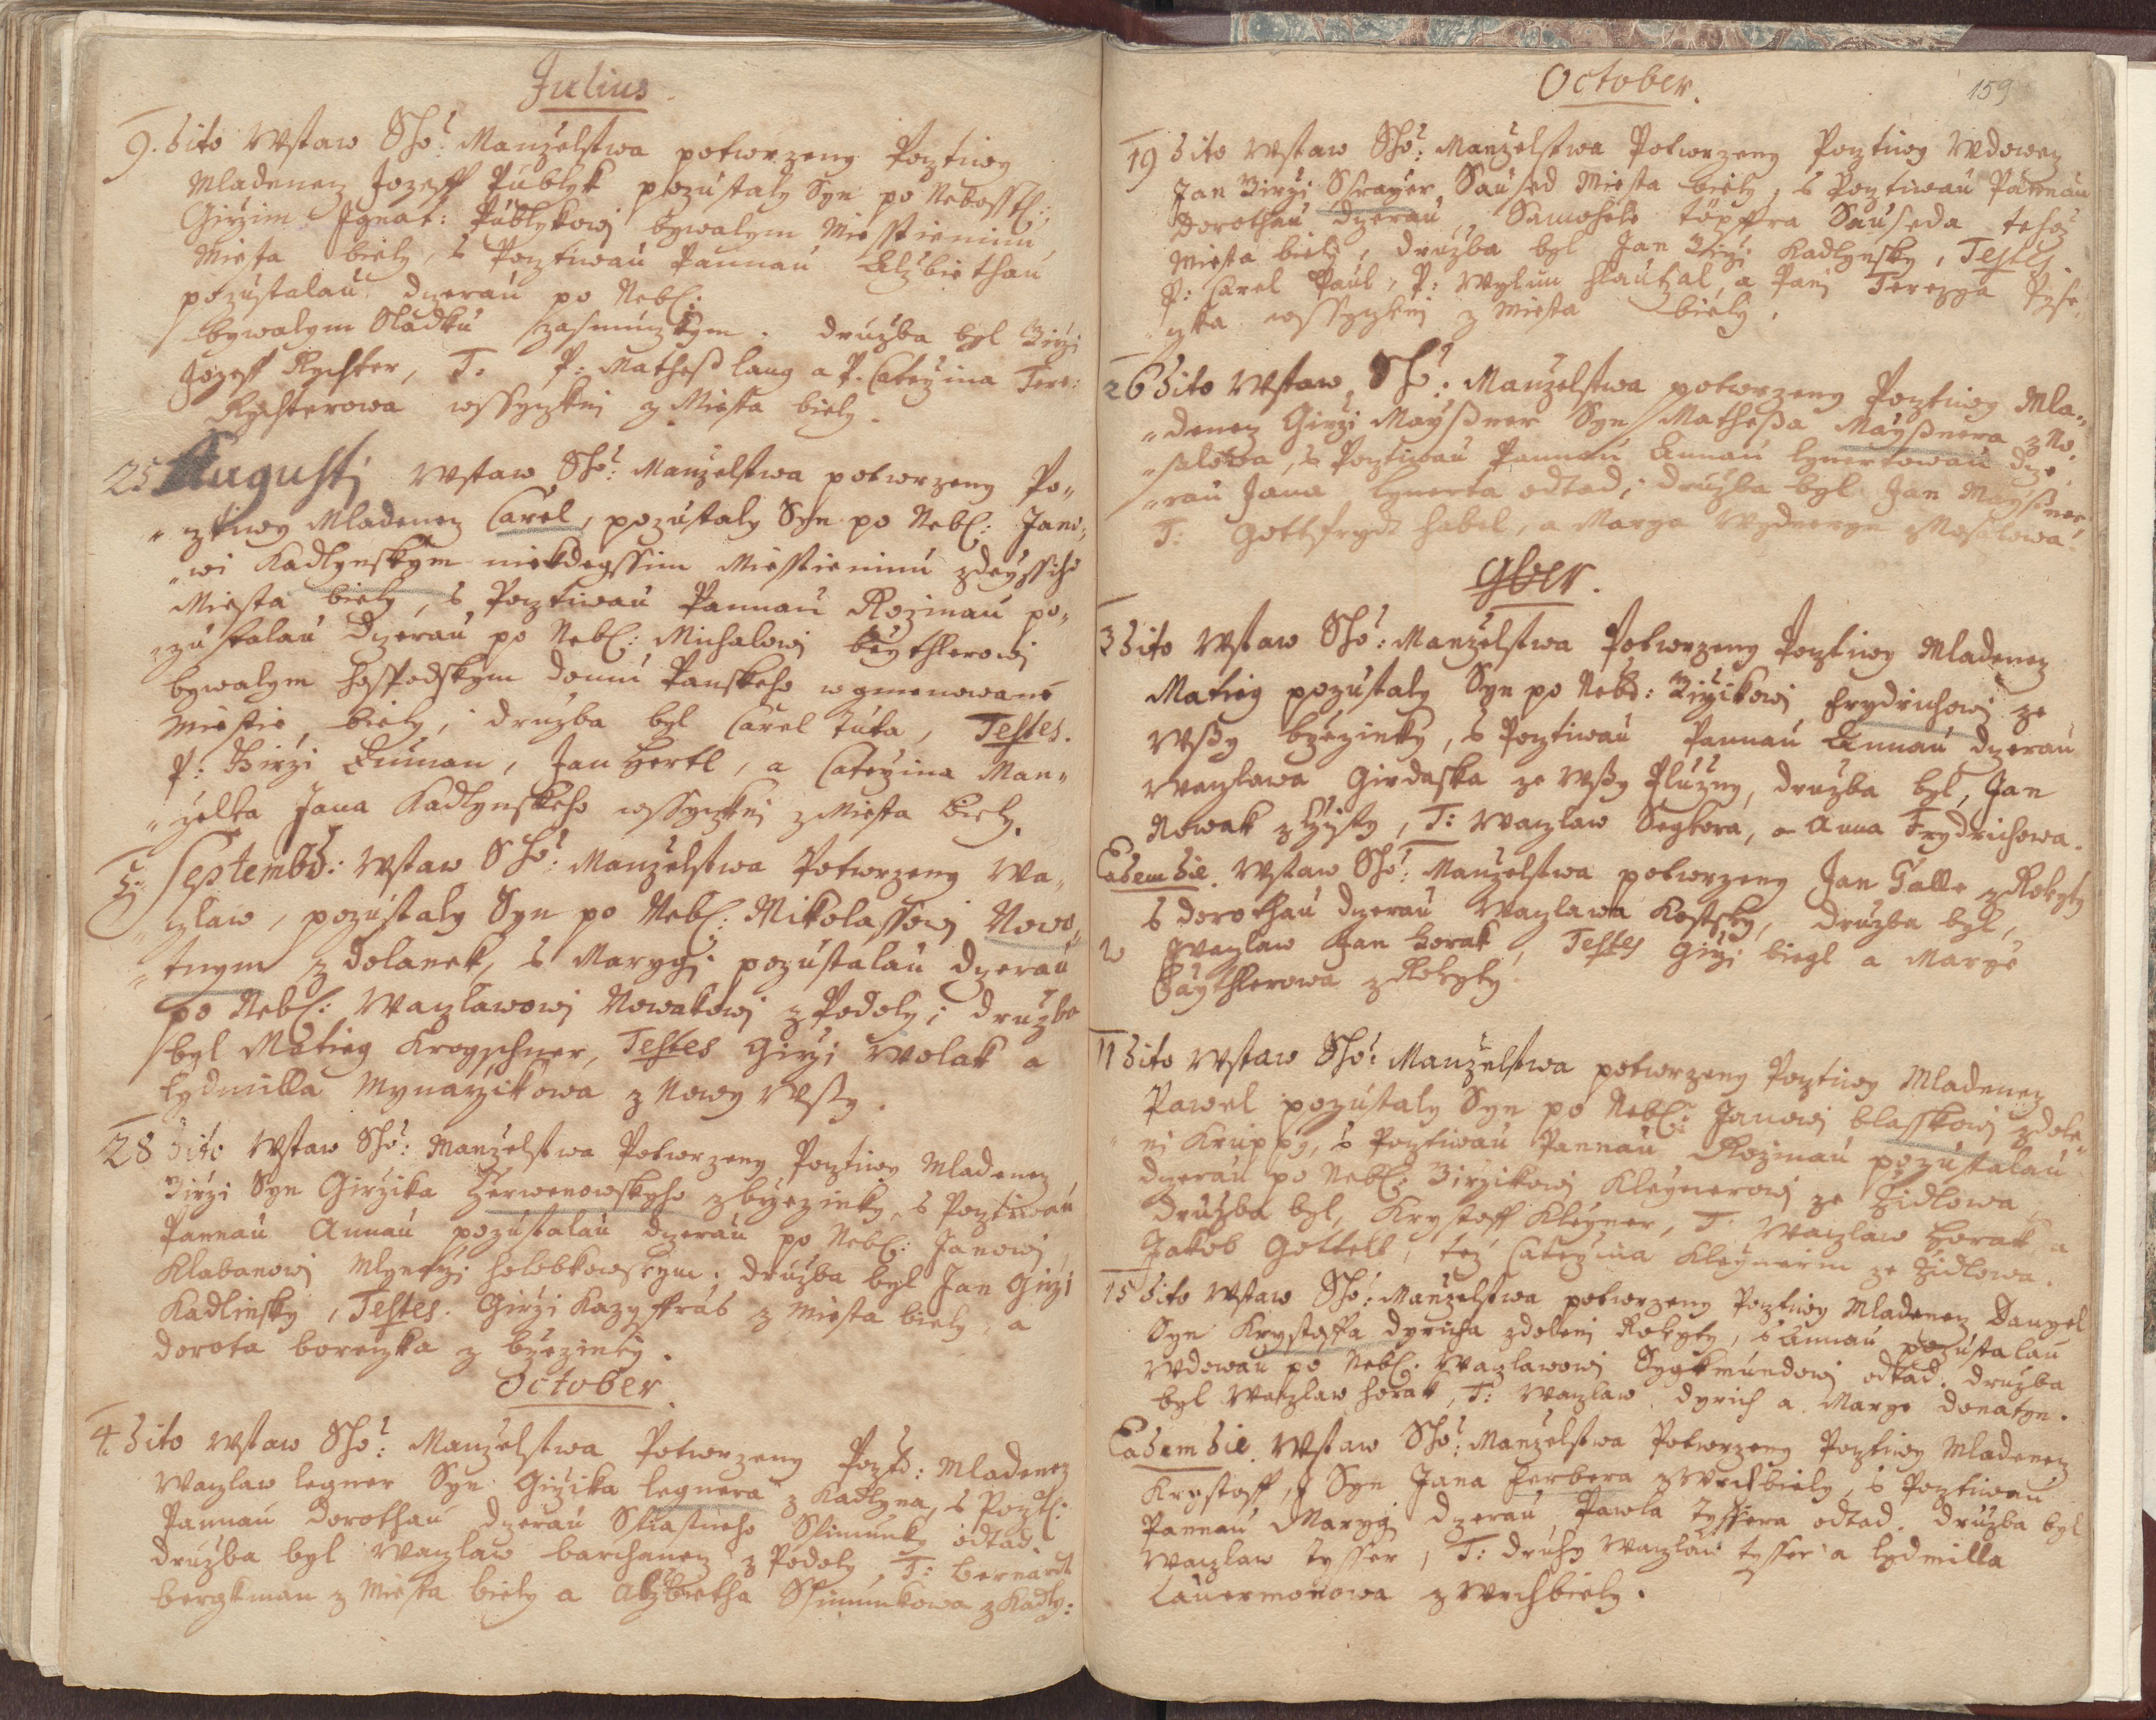 Julius
9. dito Wstaw Sho: Manželstwa potwrzeny Pocztiwy
Mladenecz Jozeff Publyk pozůstaly Syn po Nebosstk:
Girzim Ignat: Publykowj bywalym Miesstieninu
Miesta biely, s Pocztiwau Pannau Alzbiethau
pozůstalau dczerau po Nebl:
bywalym Sladku družba byl Girzi
Jozeff Rychter, T. P: Matheß lang a P. Caterzina Tere:
Rychterowa wssyczknj z Miesta biely.
25 Augustj Wstaw Sho: Manželstwa potwrzeny Po„
„cztiwy Mladenecz Carel, pozůstaly Syn po Nebl: Jano„
„wi Kadlynskym niekdegssim Miesstieninu zdeyssiho
Miesta biely, s Pocztiwau Pannau Rozinau po„
„zůstalau Dczerau po Nebl: Michalowj
bywalym Hospodskym domu Panskeho w gmenowane
Miestie biely, družba byl Carel Tuta, Testes.
P: Girzi Duman, Jan Hertl, a Caterzina Man„
„želka Jana Kadlynskeho wssyczknj z Miesta biely.
5. Septembd: Wstaw Sho: Manželstwa Potwrzeny Wa„
„czlaw, pozůstaly Syn po Nebl: Mikolassowj Nowo„
„tnym z dolanek, s Marygi pozůstalau dczerau
po Nebl: Waczlawowj Nowakowj z Podoly; družba
byl Matieg Kroyschner, Testes Girzi Wolak a
Lydmilla Mynarzikowa z Nowy Wßy.
28 dito Wstaw Sho: Manželstwa Potwrzeny Pocztiwy Mladenecz
Girzi Syn Girzika Czerwenowskyho z brzezinky, s Pocztiwau
Pannau Annau pozůstalau dczerau po Nebl: Janowj
Klabanowj Mlynarzi holobkowskym; družba byl Jan Girzi
Kadlinsky, Testes. Girzi z Miesta biely, a
dorota boreczka z brzezinky.
October.
4. dito Wstaw Sho: Manželstwa Potwrzeny Poczt: Mladenecz
Waczlaw legner Syn Girzika legnera z Kadlyna, s Poczt:
Pannau Dorothau dczerau Stiastneho Ssimunky odtad.
družba byl Waczlaw barchanecz z Podoly, T: bernardt
bergkman z Miesta biely a Alzbietha Ssimunkowa z Kadly:
October.
159
19 dito Wstaw Sho: Manželstwa Potwrzeny Pocztiwy Wdowecz
Jan Girzi Sserayer Saused Miesta biely, s Pocztiwau Pannau
Dorothau Dczerau, Samohele töpffra Sauseda tehož
Miesta biely, družba byl Jan Girzi Kadlynsky, Testes.
P: Carel Paul, P: Wylim a Panj Terezya
czka wssyczknj z Miesta biely.
26 dito Wstaw Sho: Manželstwa potwrzeny Pocztiwy Mla„
„denecz Girzi Mayßner Syn Matheßa Mayßnera z Mo„
„salowa, s Pocztiwau Pannau Annau lynertowau dcze„
„rau Jana lynerta odtad; družba byl Jan Mayßner
T: Gottfryd habel, a Marya Wydneryn z Mosalowa.
9ber.
3 dito Wstaw Sho: Manželstwa Potwrzeny Pocztiwy Mladenecz
Matieg pozůstaly Syn po Nebo: Girzikowj frydrichowj ze
Wßy brzezinky, s Pocztiwau Pannau Annau dczerau
Waczlawa Girdaska ze Wßy Pluzny, družba byl, Jan
Nowak z Czysty, T: Waczlaw Segkora, a Anna Frydrichowa.
Eadem die. Wstaw Sho: Manželstwa potwrzeny Jan Talle z Rokyty
s dorothau dczerau Waczlawa Kostky, družba byl,
Waczlaw Jan Horak, Testes Girzi biegl a Marye
z Rokyty.
11 dito Wstaw Sho: Manželstwa potwrzeny Pocztiwy Mladenecz
Pawel pozůstaly Syn po Nebl: Janowj blasskowj z dole„
nj Kruppy, s Pocztiwau Pannau Rozinau pozůstalau
dczerau po Nebl: Girzikowj Kleynerowj ze Zidlowa,
družba byl, Krystoff Kleyner, T: Waczlaw Horak a
Jakob Gottelt, tez Caterzina Kleynerin ze Zidlowa.
15 dito Wstaw Sho: Manželstwa potwrzeny Pocztiwy Mladenecz Danyel
Syn Krystoffa dyricha z dolenj Rokyty, s Annau pozůstalau
Wdowau po Nebl: Waczlawowj Sygkmundowj odtad. družba
byl Waczlaw horak, T: Waczlaw dyrich a Marye donatyn.
Eadem die. Wstaw Sho: Manželstwa Potwrzeny Pocztiwy Mladenecz
Krystoff, Syn Jana ferbera z Wrchbiely, s Pocztiwau
Pannau Marygi dczerau Pawla tyssera odtad. družba byl
Waczlaw tysser, T: druhy Waczlaw tysser a lydmilla
Lauermonowa z Wrchbiely.